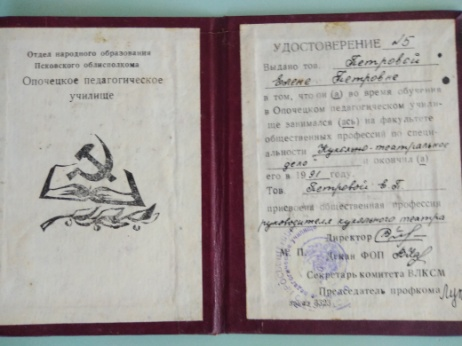 Отдел народного образования
Псковского облисполкома
Опочецкое педагогическое
училище
УДОСТОВЕРЕНИЕ №5
Выдано тов. Петровой
Елене Петровне
в том, что он (а) во время обучения
в Опочецком педагогическом учили-
ще занимался (ась) на факультете
общественных профессий по специ-
альности Кукольно-театральное
дело и окончил (а)
его в 1991 году.
Тов Петровой Е.П.
присвоена общественная профессия
руководителя кукольного театра
Директор
М. П. Декан ФОП
Секретарь комитета ВЛКСМ
Председатель профкома